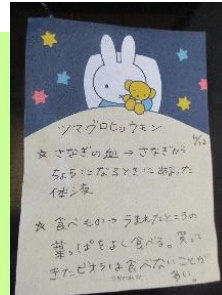 ツマグロヒョウモン
6/12
☆ さなぎの血 → さなぎから
ちょうになるときにあまった
体液
☆ 食べもの → うまれたところの
葉っぱをよく食べる。買って
きたビオラは食べないことが
多い。